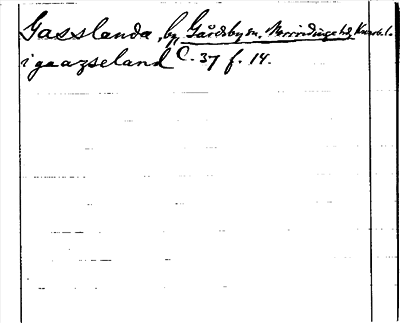 Gasslanda, by, Gårdsby sn, Norrvidinge hd, Kronob. l.
i gaazseland C. 37 f. 14.